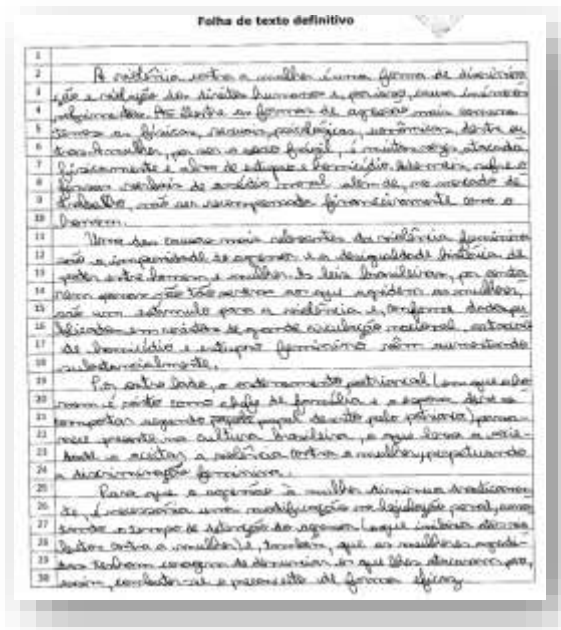 Folha de texto definitivo
1
2 A violência contra a mulher é uma forma de discrimina
3 ção e violação dos direitos humanos e, por isso, causa inúmeros
4 sofrimentos. Dentre as formas de agressão mais comuns
5 temos as físicas, sexuais, psicológicas, econômicas, dentre ou
6 tras. A mulher, por ser o sexo frágil, é muitas vezes atacada
7 fisicamente e alvo de estupro e homicídio. Ademais, sofre
8 formas verbais de assédio moral além de, no mercado de
9 trabalho, não ser recompensada financeiramente como o
10 homem.
11 Uma das causas mais relevantes da violência feminina
12 são a impunidade do agressor e a desigualdade histórica de
13 poder entre homens e mulheres. As leis brasileiras, por
14 não tão severas ao que agridem as mulheres,
15 são um estímulo para a violência e, conforme dados pu
16 blicados em revistas de grande circulação nacional,
17 de homicídio e estupro feminino vêm aumentando
18 substancialmente.
19 Por outro lado, o ordenamento patriarcal (em que o ho
20 mem é visto como chefe de família e a esposa deve se
21 comportar segundo papel descrito pelo patriarca) perma
22 nece presente na cultura brasileira, o que leva a socie
23 dade a aceitar a violência contra a mulher, perpetuando
24 a discriminação feminina.
25 Para que a agressão à mulher diminua drasticamen
26 te, é necessária uma modificação na legislação penal, aumen
27 tando o tempo de detenção do agressor (o que inibiria
28 contra a mulher) e, também, que as mulheres agredi
29 das tenham coragem de denunciar os que lhes atacaram para,
30 assim, combater-se o preconceito de forma eficaz.